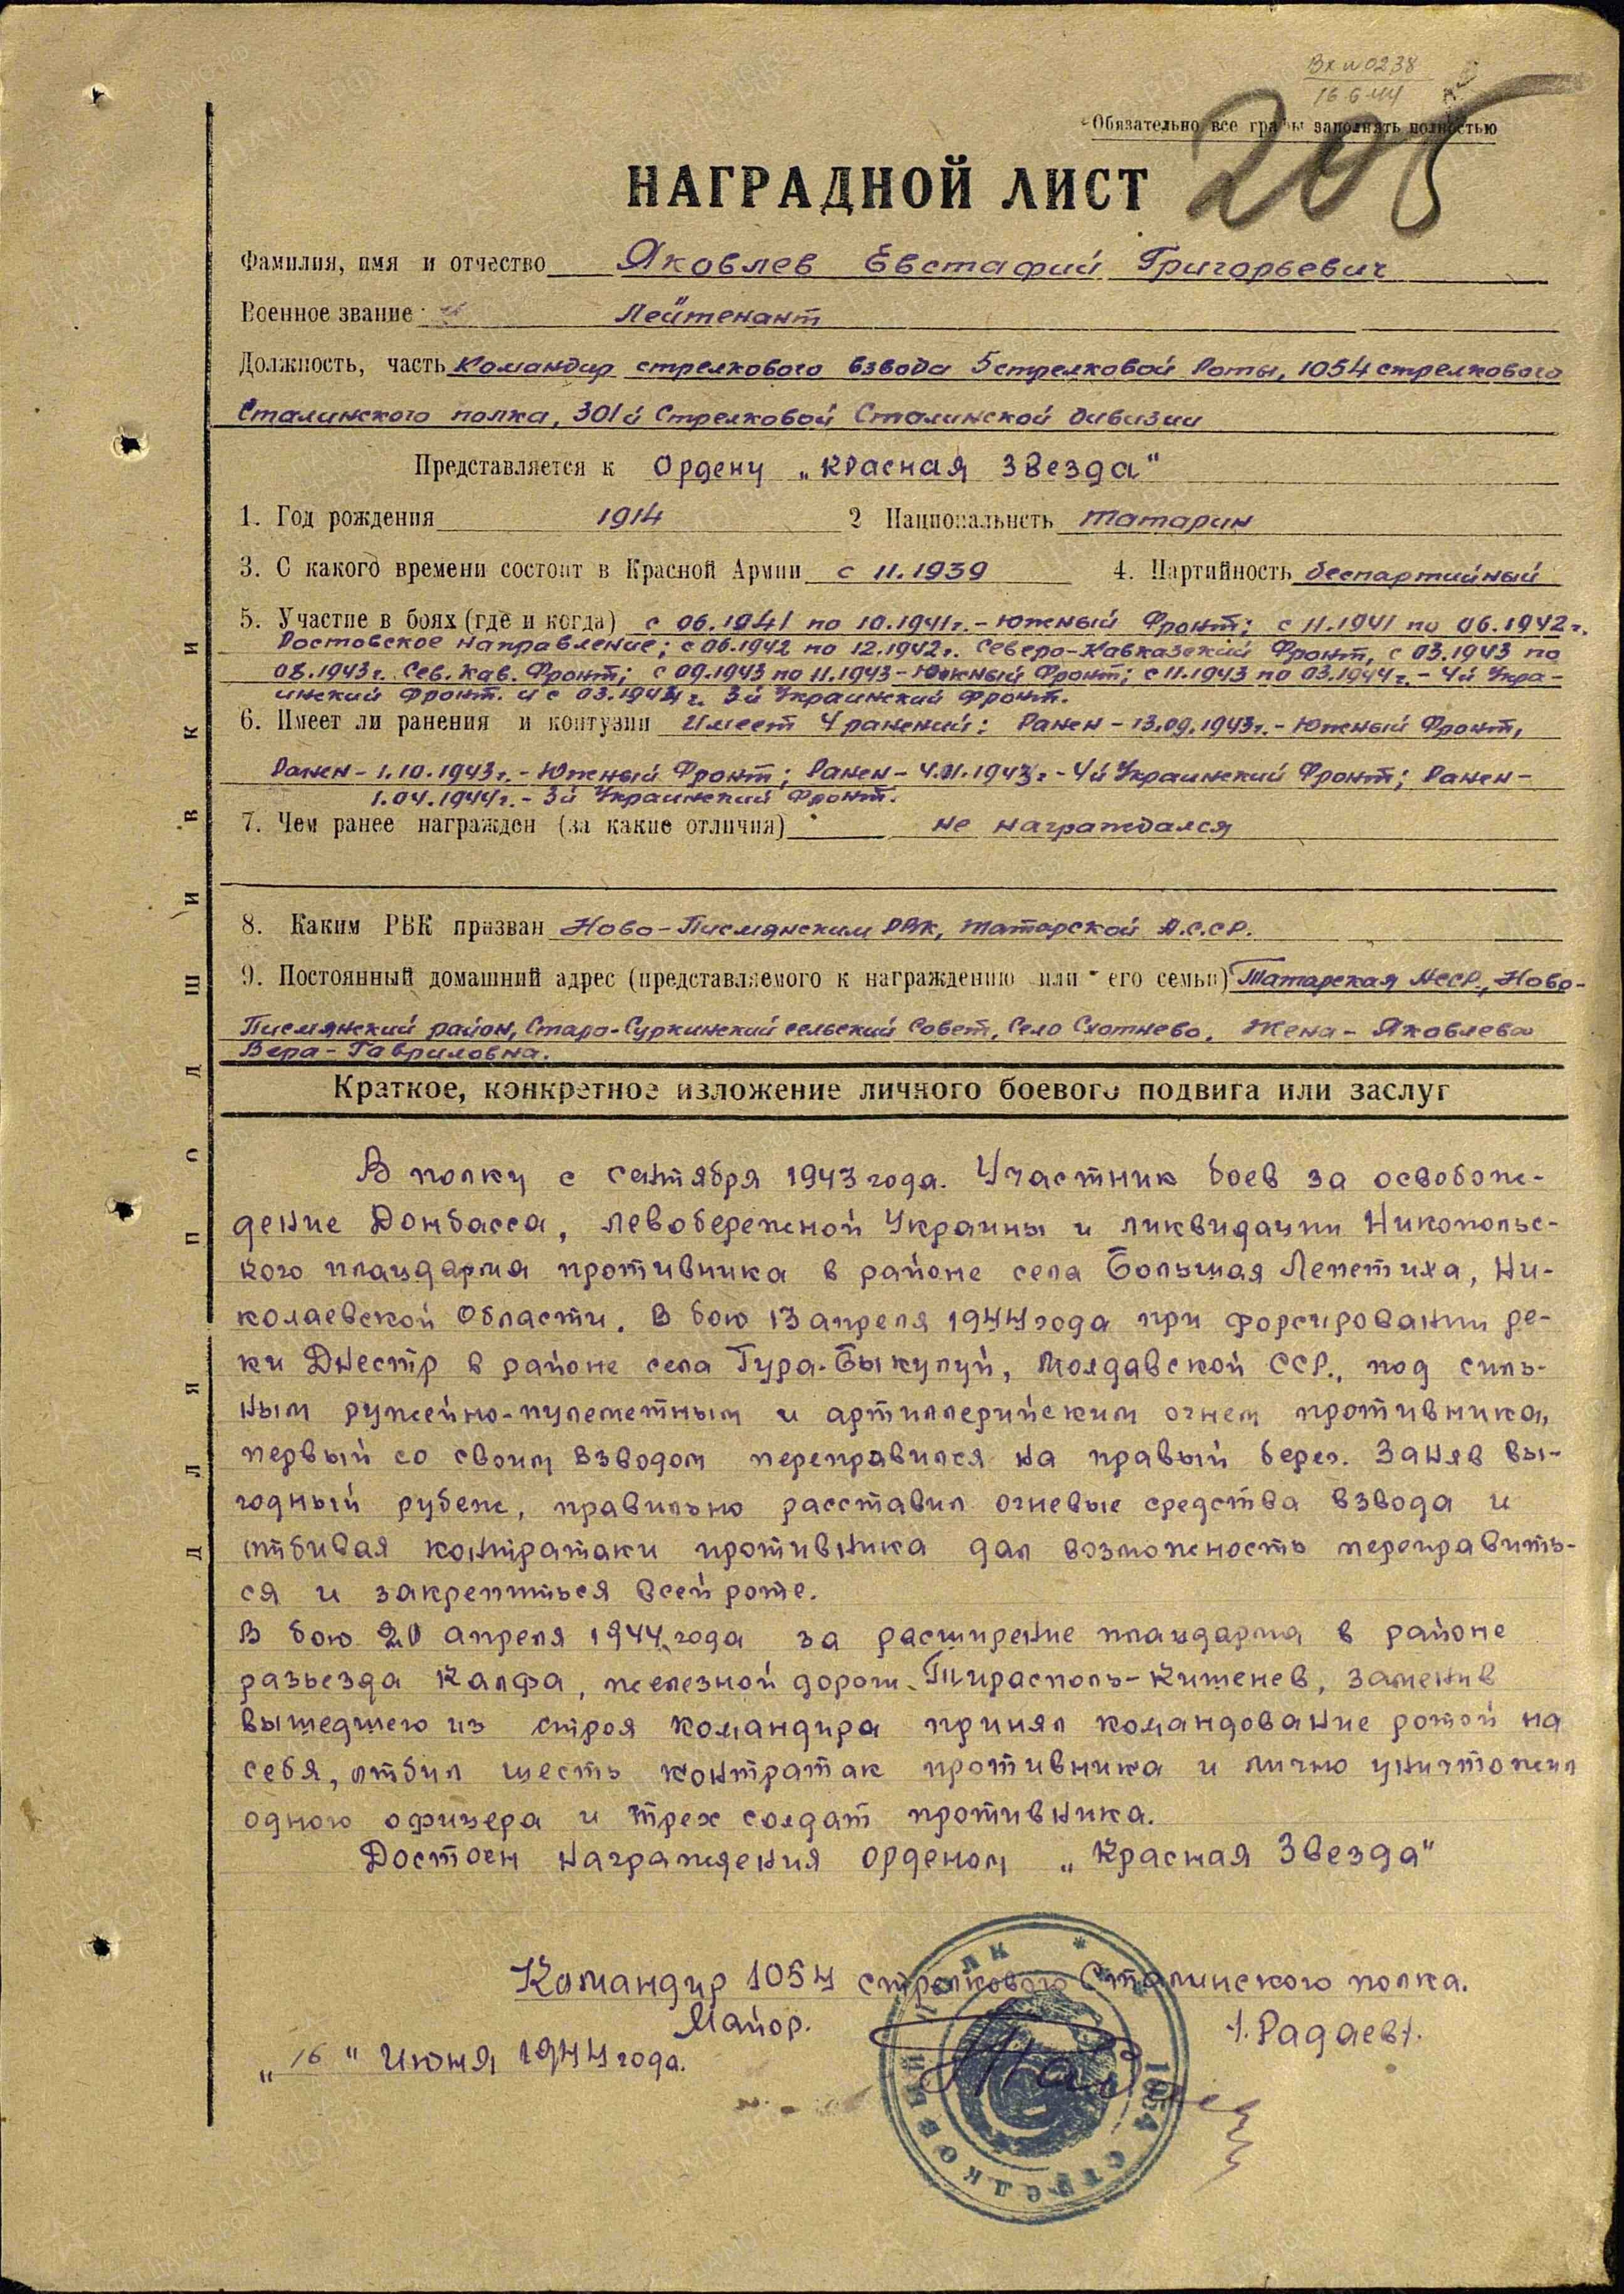 Вх №0238
16 6 44
Обязательно все графы заполнять полностью
205
НАГРАДНОЙ ЛИСТ
Фамилия, имя и отчество Яковлев Евстафий Григорьевич
Военное звание Лейтенант
Должность, часть Командир стрелкового взвода 5 стрелковой Роты, 1054 стрелкового
Сталинского полка, 301й Стрелковой Сталинской дивизии
Представляется к Ордену „Красная Звезда“
1. Год рождения 1914 2 Национальнсть татарин
3. С какого времени состоит в Красной Армии с 11.1939 4. Партийность беспартийный
5. Участие в боях (где и когда) с 06.1941 по 10.1941г. - Южный Фронт; с 11.1941 по 06.1942г.
Ростовское направление; с 06.1942 по 12.1942г. Северо-Кавказский Фронт, с 03.1943 по
08.1943г. Сев. Кав. Фронт; с 09.1943 по 11.1943 - Южный Фронт; с 11.1943 по 03.1944г. - 4й Укра-
инский Фронт. и с 03.1944г. 3й Украинский Фронт.
6. Имеет ли ранения и контузии Имеет 4 ранений: Ранен - 13.09.1943г. - Южный Фронт,
Ранен - 1.10.1943г. - Южный Фронт; Ранен - 4.11.1943г - 4й Украинский Фронт; Ранен -
1.04.1944г. - 3й Украинский Фронт.
7. Чем ранее награжден (за какие отличия) не награждался
8. Каким РВК призван Ново-Писмянским РВК, татарской А.С.СР.
9. Постоянный домашний адрес (представляемого к награждению или его семьи) Татарская АССР, Ново-
Писмянский район, Старо-Суркинский сельский Совет, Село Схотнево. Жена - Яковлева
Вера - Гавриловна.
Краткое, конкретное изложение личного боевого подвига или заслуг
В полку с сентября 1943 года. Участник боев за освобож-
дение Донбасса, левобережной Украины и ликвидации Никопольс-
кого плацдарма противника в районе села Большая Лепетиха, Ни-
колаевской Области. В бою 13 апреля 1944 года при форсировании ре-
ки Днестр в районе села Гура-Быкулуй, Молдавской ССР., под силь-
ным ружейно-пулеметным и артиллерийским огнем противника,
первый со своим взводом переправился на правый берег. Заняв вы-
годный рубеж, правильно расставил огневые средства взвода и
отбивая контратаки противника дал возможность переправить-
ся и закрепиться всей роте.
В бою 20 апреля 1944 года за расширение плацдарма в районе
разьезда Калфа, железной дороги Тирасполь-Кишенев, заменив
вышедшего из строя командира принял командование ротой на
себя, отбил шесть контратак противника и лично уничтожил
одного офицера и трех солдат противника.
Достоен награждения орденом „Красная Звезда“
Командир 1054 стрелкового Сталинского полка.
Майор. /Радаев/.
„16“ Июня 1944 года.
1054 СТРЕЛКОВЫЙ ПОЛК *
ДЛЯ ПОДШИВКИ